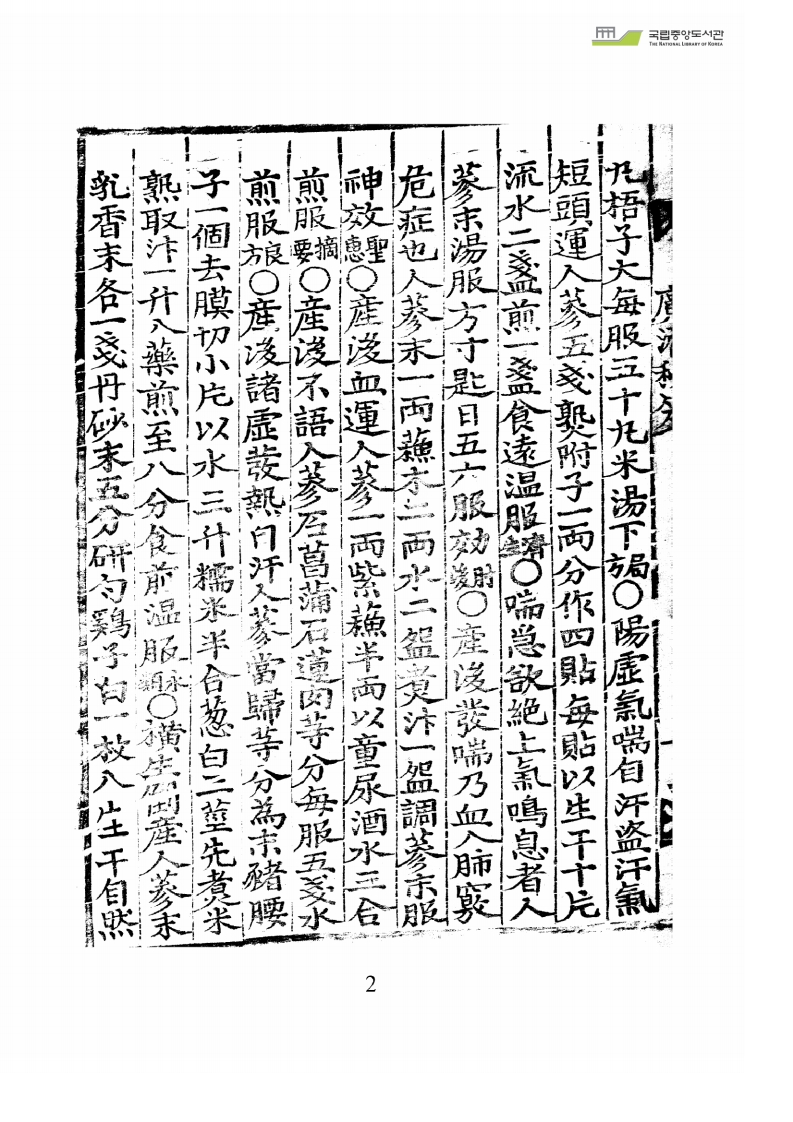 국립중앙도서관
THE NATIONAL LIBRARY OF KOREA
廣濟秘笈
丸梧子大每服五十丸米湯下局方○陽虛氣喘自汗盜汗氣
短頭運人蔘五戔熟附子一兩分作四貼每貼以生干十片
流水二盞煎一盞食遠溫服濟生○喘急欲絶上氣鳴息者人
蔘末湯服方寸匙日五六服効肘後○産後發喘乃血入肺竅
危症也人蔘末一兩蘓木二兩水二盌煮汁一盌調蔘末服
神效聖惠○産後血運人蔘一兩紫蘓半兩以童尿酒水三合
煎服摘要○産後不語人蔘石菖蒲石蓮肉等分每服五戔水
煎服良方○産後諸虛發熱自汗人蔘當歸等分為末豬腰
子一個去膜切小片以水三升糯米半合葱白二莖先煮米
熟取汁一升入藥煎至八分食前溫服永類○橫生倒産人蔘末
乳香末各一戔丹砂末五分硏勻鷄子白一枚入生干自然
2